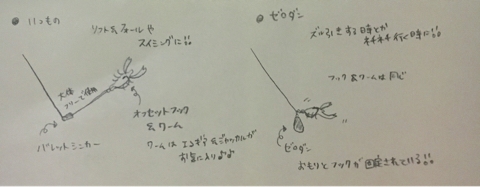 ● いつもの
リフト&フォールや
スイミングに!!
大体
フリーで使用
オフセットフック
&ワーム
バレットシンカー
ワームは エコギア&ジャッカルが
お気に入り♪♪
● ゼロダン
ズル引きする時とか
ネチネチ行く時に!!
フック&ワームは同じ
ゼロダン
おもりとフックが固定されている!!